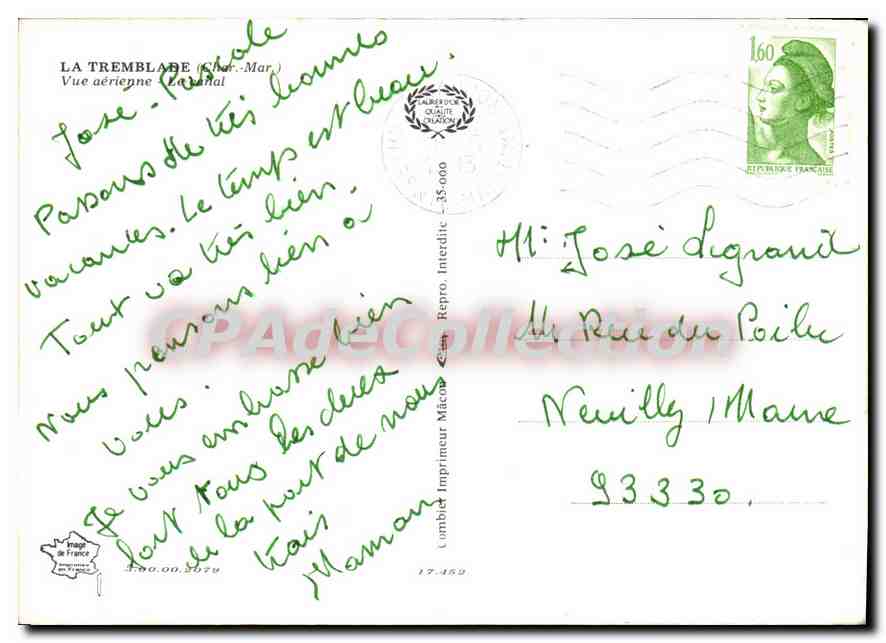 LA TREMBLADE (Char.-Mar.)
Vue aérienne - Le canal
José - Pascale
Passons de très bonnes
vacances. Le temps est beau.
Tout va très bien.
Nous pensons bien à
vous.
Je vous embrasse bien
fort tous les deux
de la part de nous
trois
Maman
Image
de France
3.00.00.2079
17.452
Combier Imprimeur Mâcon
Repro. Interdite - 35-000
LAURIER D'OR
DE LA
QUALITÉ
CRÉATION
1,60
POSTES
REPUBLIQUE FRANÇAISE
Mr José Legrand
11 Rue du Poilu
Neuilly / Marne
93330.
CPAdeCollection.com